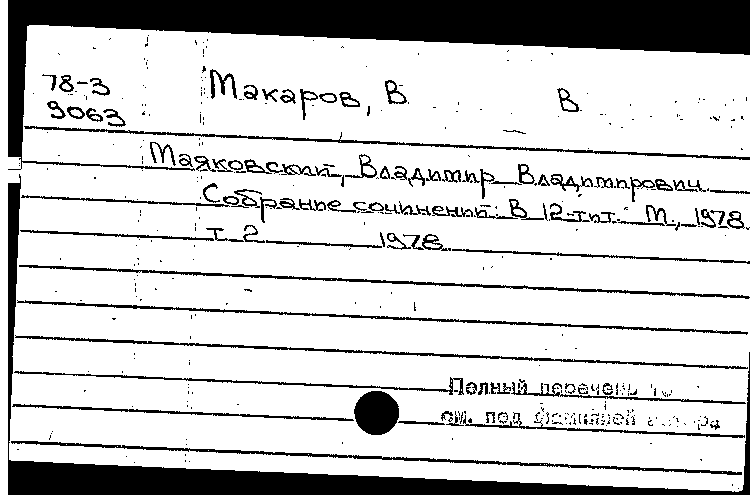 78-3
9063
Макаров, В В
Маяковский, Владимир Владимирович
Собрание сочинений: В 12-ти т. М., 1978
т 2 1978
Полный перечень
см. под фамилией